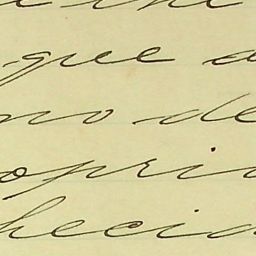 que a
no de
opri
hecid